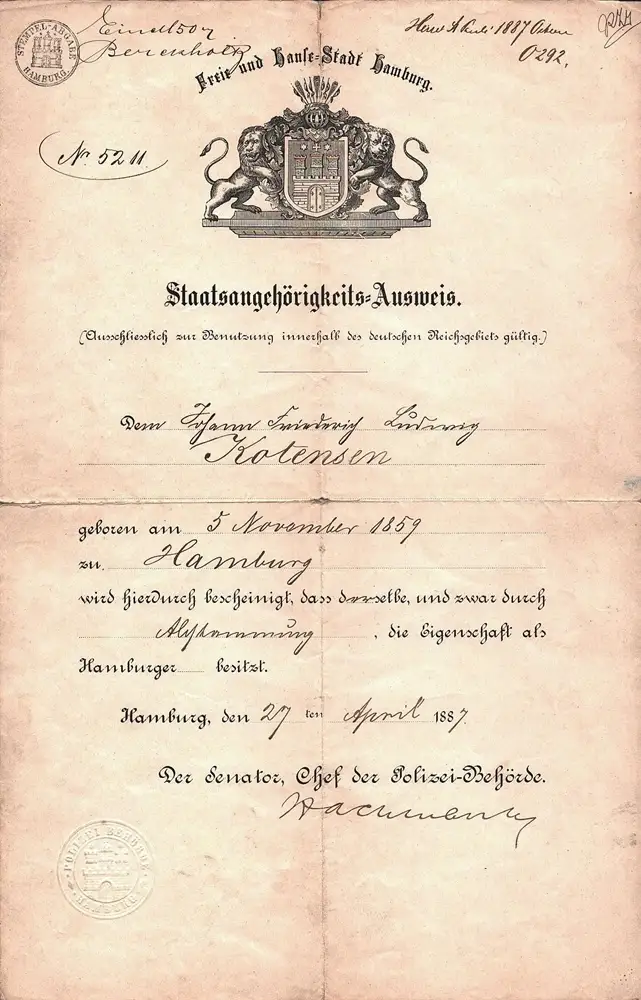 STEMPEL-ABGABE HAMBURG
1887
O292.
Freie und Hanse-Stadt Hamburg.
No. 5211
Staatsangehörigkeits-Ausweis.
(Ausschliesslich zur Benutzung innerhalb des deutschen Reichsgebiets gültig.)
Dem Johann Friederich Ludwig
Kotensen
geboren am 5 November 1859
zu Hamburg
wird hierdurch bescheinigt, dass derselbe, und zwar durch
Abstammung, die Eigenschaft als
Hamburger besitzt.
Hamburg, den 27 ten April 1887.
Der Senator, Chef der Polizei-Behörde.
Hachmann
POLIZEI BEHÖRDE HAMBURG